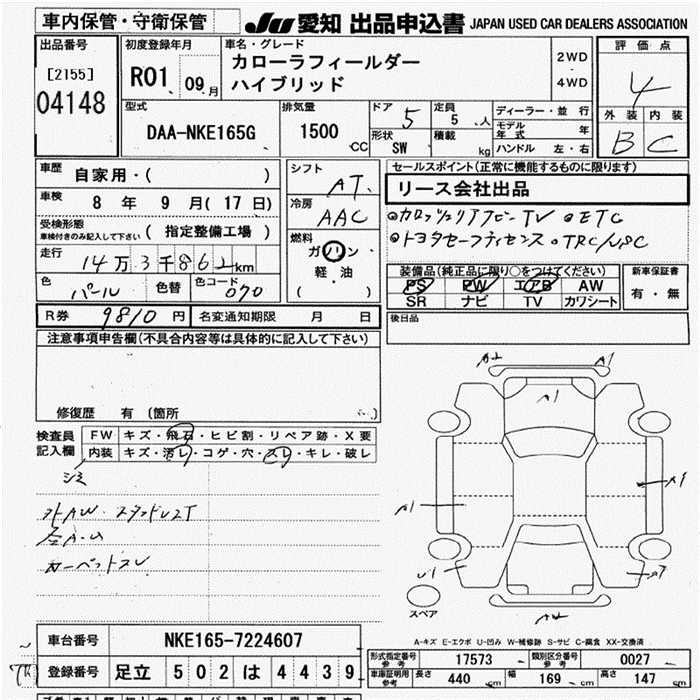 車内保管・守衛保管
JU 愛知 出品申込書 JAPAN USED CAR DEALERS ASSOCIATION
出品番号
[2155]
04148
初度登録年月
R01. 09 月
車名・グレード
カローラフィールダー
ハイブリッド
2WD
・
4WD
評価点
4
外装 内装
B C
型式
DAA-NKE165G
排気量
1500 CC
ドア 5
形状 SW
定員 5 人
積載 kg
ディーラー・並行
モデル年式 年
ハンドル 左・右
車歴
自家用・( )
車検
8 年 9 月(17日)
受検形態
車検付きのみ記入して下さい
(指定整備工場)
走行
14万3千862km
色
パール
色替
色コード
070
シフト
AT
冷房
AAC
燃料
ガソリン・
軽・油
( )
セールスポイント(正常に機能するものに限ります)
リース会社出品
TV ETC
トヨタセーフティセンス
装備品(純正品に限り○をつけてください)
PS PW エアB AW
SR ナビ TV カワシート
新車保証書
有・無
R券 9810 円
名変通知期限 月 日
後日品
注意事項申告欄(不具合内容等は具体的に記入して下さい)
修復歴 有(箇所 )
検査員
記入欄
FW キズ・飛石・ヒビ割・リペア跡・X要
内装 キズ・汚レ・コゲ・穴・スレ・キレ・破レ
シミ
カーペットスレ
A2 A1
A1
A1
A1
U1
A2
スペア
A-キズ E-エクボ U-凹み W-補修跡 S-サビ C-腐食 XX-交換済
車台番号 NKE165-7224607
登録番号 足立 502 は 4439
形式指定番号
参考
17573
類別区分番号
参考
0027
車庫証明用
参考
長さ 440 cm
幅 169 cm
高さ 147 cm